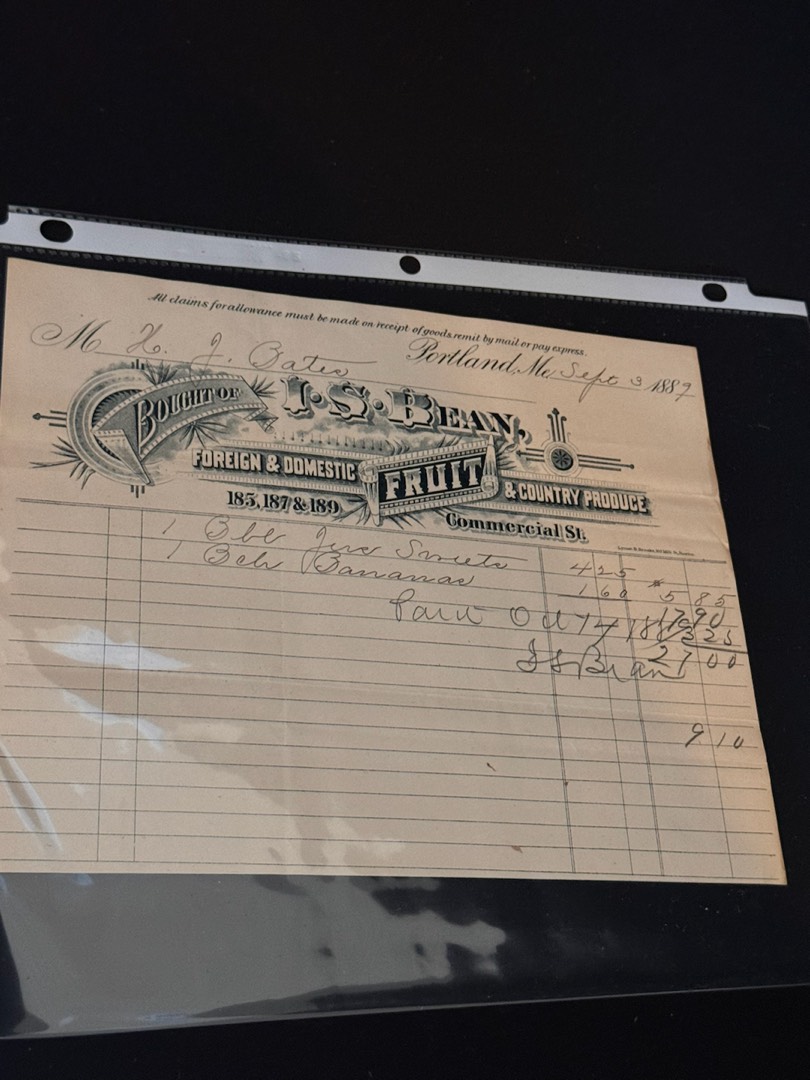 All claims for allowance must be made on receipt of goods, remit by mail or pay express.
Portland, Me, Sept 3 1889
M H. J. Bates
BOUGHT OF I. S. BEAN,
FOREIGN & DOMESTIC FRUIT & COUNTRY PRODUCE
185, 187 & 189 Commercial St.
1 Bbl Sweets 4 25
1 Bch Bananas 1 60 $5 85
17 90
Paid Oct 14 188 3 25
I S Bean 27 00
9 10